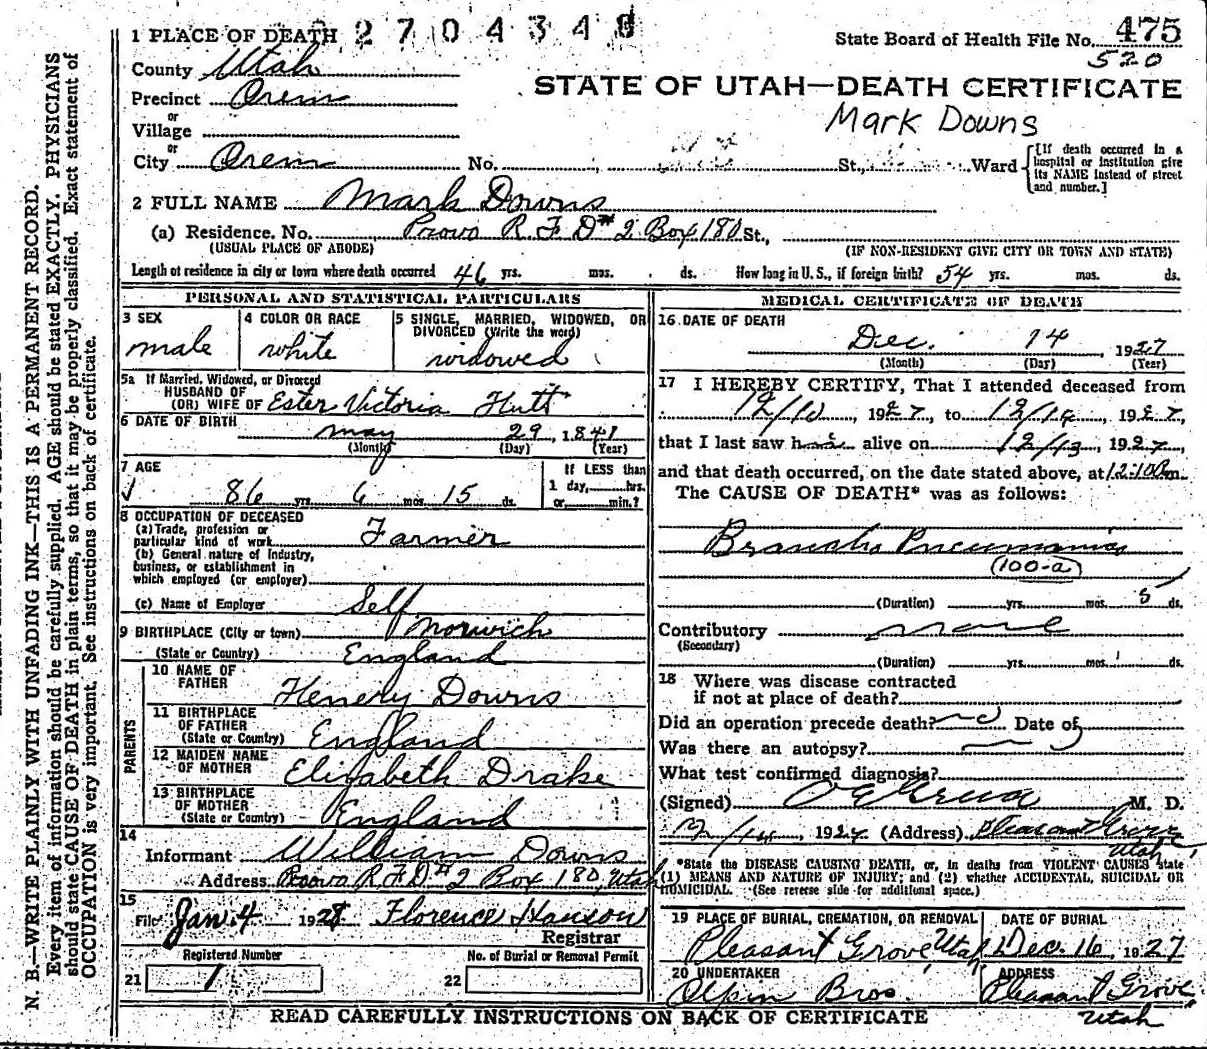 1 PLACE OF DEATH 2704348
State Board of Health File No. 475
520
County Utah
STATE OF UTAH—DEATH CERTIFICATE
Precinct Orem
Mark Downs
or
Village
or
City Orem No. St., Ward
[If death occurred in a hospital or institution give its NAME instead of street and number.]
2 FULL NAME Mark Downs
(a) Residence. No. Provo R F D #2 Box 180 St.,
(USUAL PLACE OF ABODE) (IF NON-RESIDENT GIVE CITY OR TOWN AND STATE)
Length of residence in city or town where death occurred 46 yrs. mos. ds. How long in U. S., if foreign birth? 54 yrs. mos. ds.
PERSONAL AND STATISTICAL PARTICULARS
3 SEX
male
4 COLOR OR RACE
white
5 SINGLE, MARRIED, WIDOWED, OR DIVORCED (Write the word)
widowed
5a If Married, Widowed, or Divorced
HUSBAND OF
(OR) WIFE OF Ester Victoria Hutt
6 DATE OF BIRTH May 29, 1841
(Month) (Day) (Year)
7 AGE
86 yrs. 6 mos. 15 ds.
If LESS than
1 day, hrs.
or min.?
8 OCCUPATION OF DECEASED
(a) Trade, profession or
particular kind of work Farmer
(b) General nature of Industry,
business, or establishment in
which employed (or employer)
(c) Name of Employer Self
9 BIRTHPLACE (City or town) Norwich
(State or Country) England
PARENTS
10 NAME OF
FATHER Henery Downs
11 BIRTHPLACE
OF FATHER
(State or Country) England
12 MAIDEN NAME
OF MOTHER Elizabeth Drake
13 BIRTHPLACE
OF MOTHER
(State or Country) England
14
Informant William Downs
Address Provo R F D #2 Box 180, Utah
15
File Jan. 4 1928 Florence Hanson
Registrar
Registered Number
21 1
No. of Burial or Removal Permit
22
MEDICAL CERTIFICATE OF DEATH
16 DATE OF DEATH
Dec. 14, 1927
(Month) (Day) (Year)
17 I HEREBY CERTIFY, That I attended deceased from
12/10, 1927, to 12/14, 1927,
that I last saw him alive on 12/13, 1927,
and that death occurred, on the date stated above, at 12:10 m.
The CAUSE OF DEATH* was as follows:
Broncho Pneumonia
(100-a)
(Duration) yrs. mos. 5 ds.
Contributory none
(Secondary)
(Duration) yrs. mos. ds.
18 Where was disease contracted
if not at place of death?
Did an operation precede death? no Date of
Was there an autopsy?
What test confirmed diagnosis?
(Signed) M. D.
12/14, 1927 (Address) Pleasant Grove
Utah
*State the DISEASE CAUSING DEATH, or, in deaths from VIOLENT CAUSES state
(1) MEANS AND NATURE OF INJURY; and (2) whether ACCIDENTAL, SUICIDAL OR
HOMICIDAL. (See reverse side for additional space.)
19 PLACE OF BURIAL, CREMATION, OR REMOVAL
Pleasant Grove Utah
DATE OF BURIAL
Dec. 16, 1927
20 UNDERTAKER
Olpin Bros.
ADDRESS
Pleasant Grove,
Utah
READ CAREFULLY INSTRUCTIONS ON BACK OF CERTIFICATE
N. B.—WRITE PLAINLY WITH UNFADING INK—THIS IS A PERMANENT RECORD.
Every item of information should be carefully supplied. AGE should be stated EXACTLY. PHYSICIANS
should state CAUSE OF DEATH in plain terms, so that it may be properly classified. Exact statement of
OCCUPATION is very important. See instructions on back of certificate.